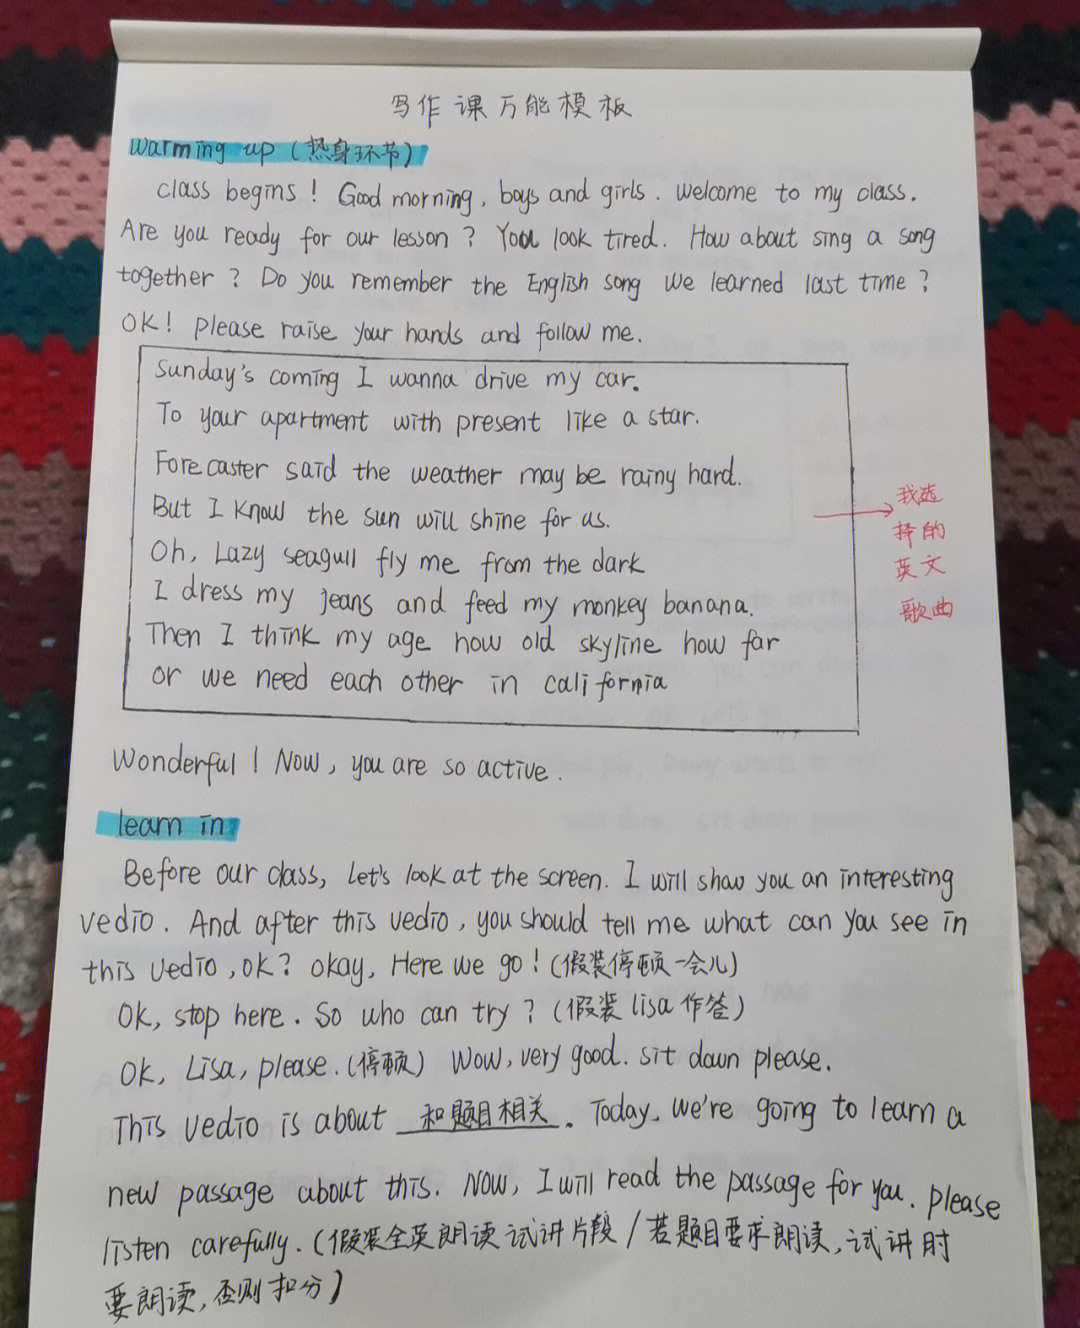 写作课万能模板
warming up (热身环节)
class begins! Good morning, boys and girls. Welcome to my class.
Are you ready for our lesson? You look tired. How about sing a song
together? Do you remember the English song we learned last time?
OK! please raise your hands and follow me.
Sunday's coming I wanna drive my car.
To your apartment with present like a star.
Forecaster said the weather may be rainy hard.
But I know the sun will shine for us.
Oh, Lazy seagull fly me from the dark
I dress my jeans and feed my monkey banana.
Then I think my age how old skyline how far
or we need each other in california
我选
择的
英文
歌曲
Wonderful! Now, you are so active.
learn in
Before our class, Let's look at the screen. I will show you an interesting
vedio. And after this vedio, you should tell me what can you see in
this vedio, ok? okay, Here we go! (假装停顿一会儿)
Ok, stop here. So who can try? (假装lisa作答)
Ok, Lisa, please. (停顿) Wow, very good. sit down please.
This vedio is about 和题目相关. Today, we're going to learn a
new passage about this. Now, I will read the passage for you. please
listen carefully. (假装全英朗读试讲片段/若题目要求朗读,试讲时
要朗读,否则扣分)